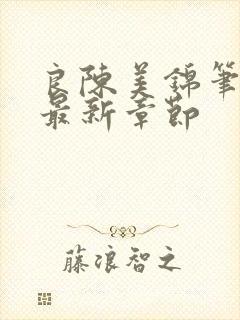 良陳美錦筆
最新章節
藤浪智之